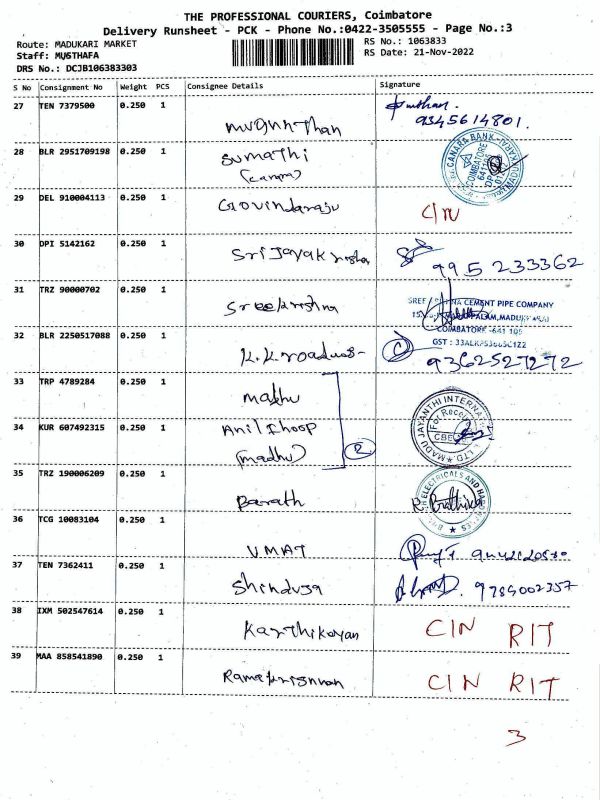 THE PROFESSIONAL COURIERS, Coimbatore
Delivery Runsheet - PCK - Phone No.:0422-3505555 - Page No.:3
Route: MADUKARI MARKET RS No.: 1063833
Staff: MUSTHAFA RS Date: 21-Nov-2022
DRS No.: DCJB106383303
S No Consignment No Weight PCS Consignee Details Signature
27 TEN 7379500 0.250 1
9345614801.
28 BLR 2951709198 0.250 1 Sumathi
(canara) CANARA BANK COIMBATORE
29 DEL 910004113 0.250 1 Govindaraju
30 DPI 5142162 0.250 1
995 233362
31 TRZ 90000702 0.250 1 Sreekrishna
CEMENT PIPE COMPANY
COIMBATORE -641 105
32 BLR 2250517088 0.250 1 K.K.roadwas-
9362527272
33 TRP 4789284 0.250 1 Madhu
34 KUR 607492315 0.250 1 Anil
(madhu) 2 MADU JAYANTHI INTERNATIONAL LTD.
35 TRZ 190006209 0.250 1 Barath
ELECTRICALS AND
36 TCG 10083104 0.250 1 UMAT
37 TEN 7362411 0.250 1 Shinduja 9789002357
38 IXM 502547614 0.250 1 Karthikayan CIN RIT
39 MAA 858541890 0.250 1 Ramakrishnan CIN RIT
3